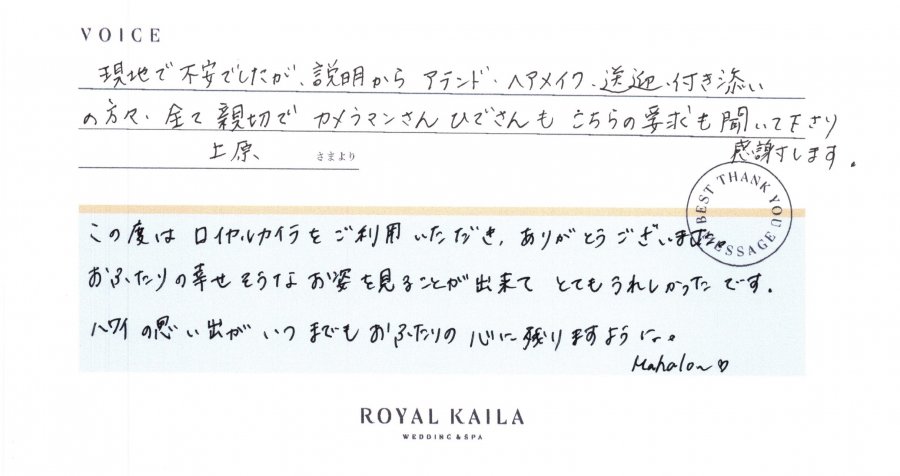 VOICE
現地で不安でしたが、説明から アテンド・ヘアメイク・送迎・付き添い
の方々、全て親切で カメラマンさん ひでさんも こちらの要求も聞いて下さり
感謝します。
上原 さまより
BEST THANK YOU MESSAGE
この度は ロイヤルカイラをご利用いただき、ありがとうございました。
おふたりの幸せそうなお姿を見ることが出来て とてもうれしかったです。
ハワイの思い出がいつまでもおふたりの心に残りますように。
Mahalo~♡
ROYAL KAILA
WEDDING & SPA